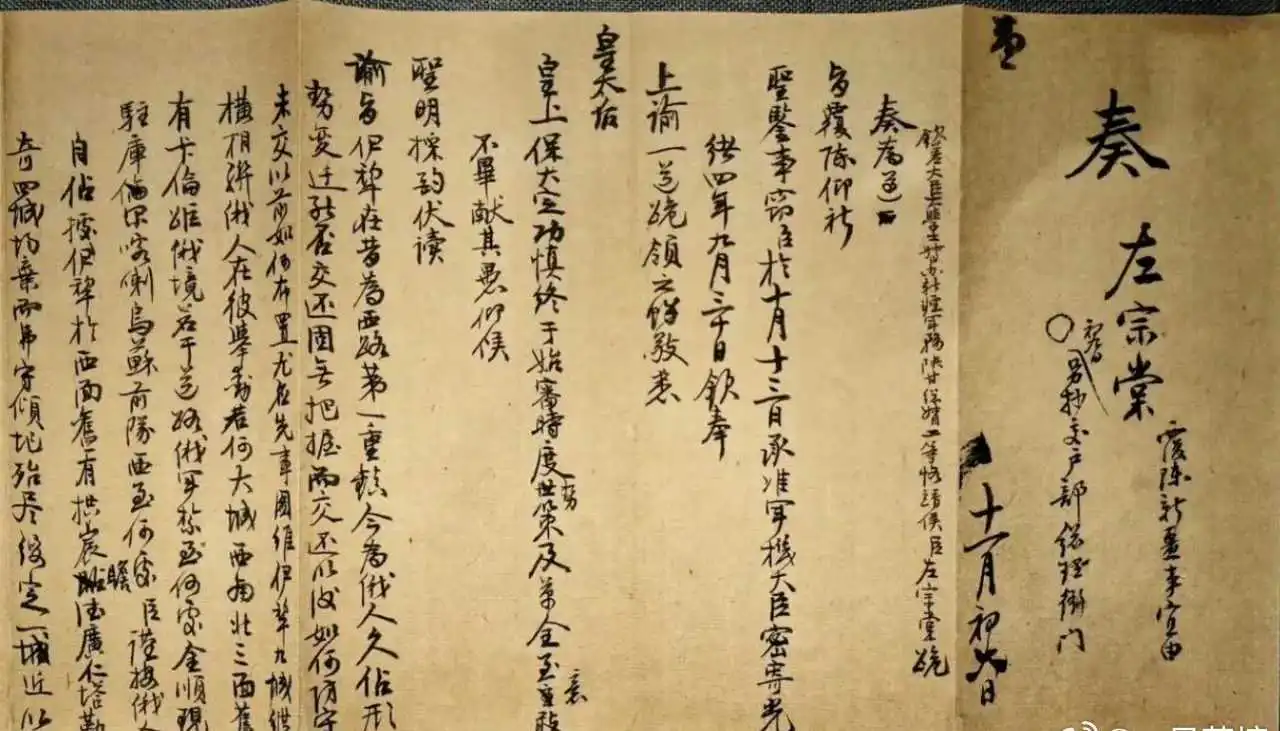 奏
左宗棠
覆陳新疆事宜由
另抄交戶部總理衙門
十一月初六日
欽差大臣督辦新疆軍務陝甘總督二等恪靖侯臣左宗棠跪
奏為遵
旨覆陳仰祈
聖鑒事竊臣於十月十三日承准軍機大臣密寄光
緒四年九月三十日欽奉
上諭一道跪領之餘敬悉
皇太后
皇上保大定功慎終于始審時度勢策及萬全至意敢
不畢獻其愚仰俟
聖明採酌伏讀
諭旨伊犁在昔為西路第一重鎮今為俄人久佔形
勢變遷能否交還固無把握而交還以後如何防守
未交以前如何布置尤宜先事圖維伊犁九城縱
橫相聯俄人在彼舉動若何大城西南北三面舊
有卡倫距俄境若干道路俄軍紮至何處金順現
駐庫爾喀喇烏蘇前隊西至何處臣謹按俄人
自佔據伊犁於西面舊有拱宸瞻德廣仁塔勒
奇四城均棄而弗守傾圮殆盡綏定一城近以